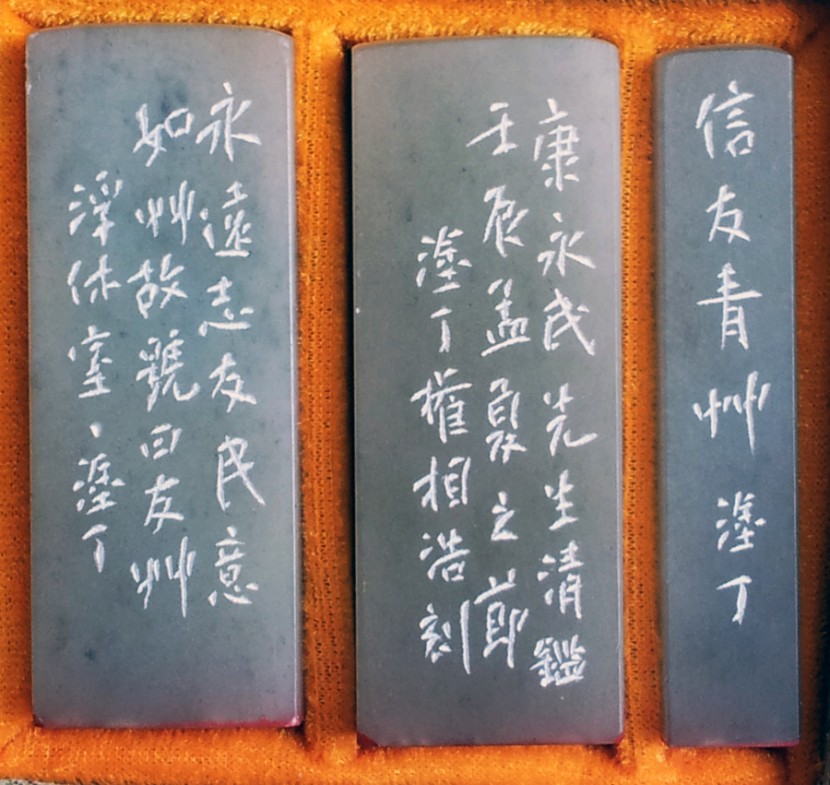 永遠志友民意
如艸故號曰友艸
浮休室、塗丁
康永民先生清鑑
壬辰孟夏之節
塗丁權相浩刻
信友青艸
塗丁